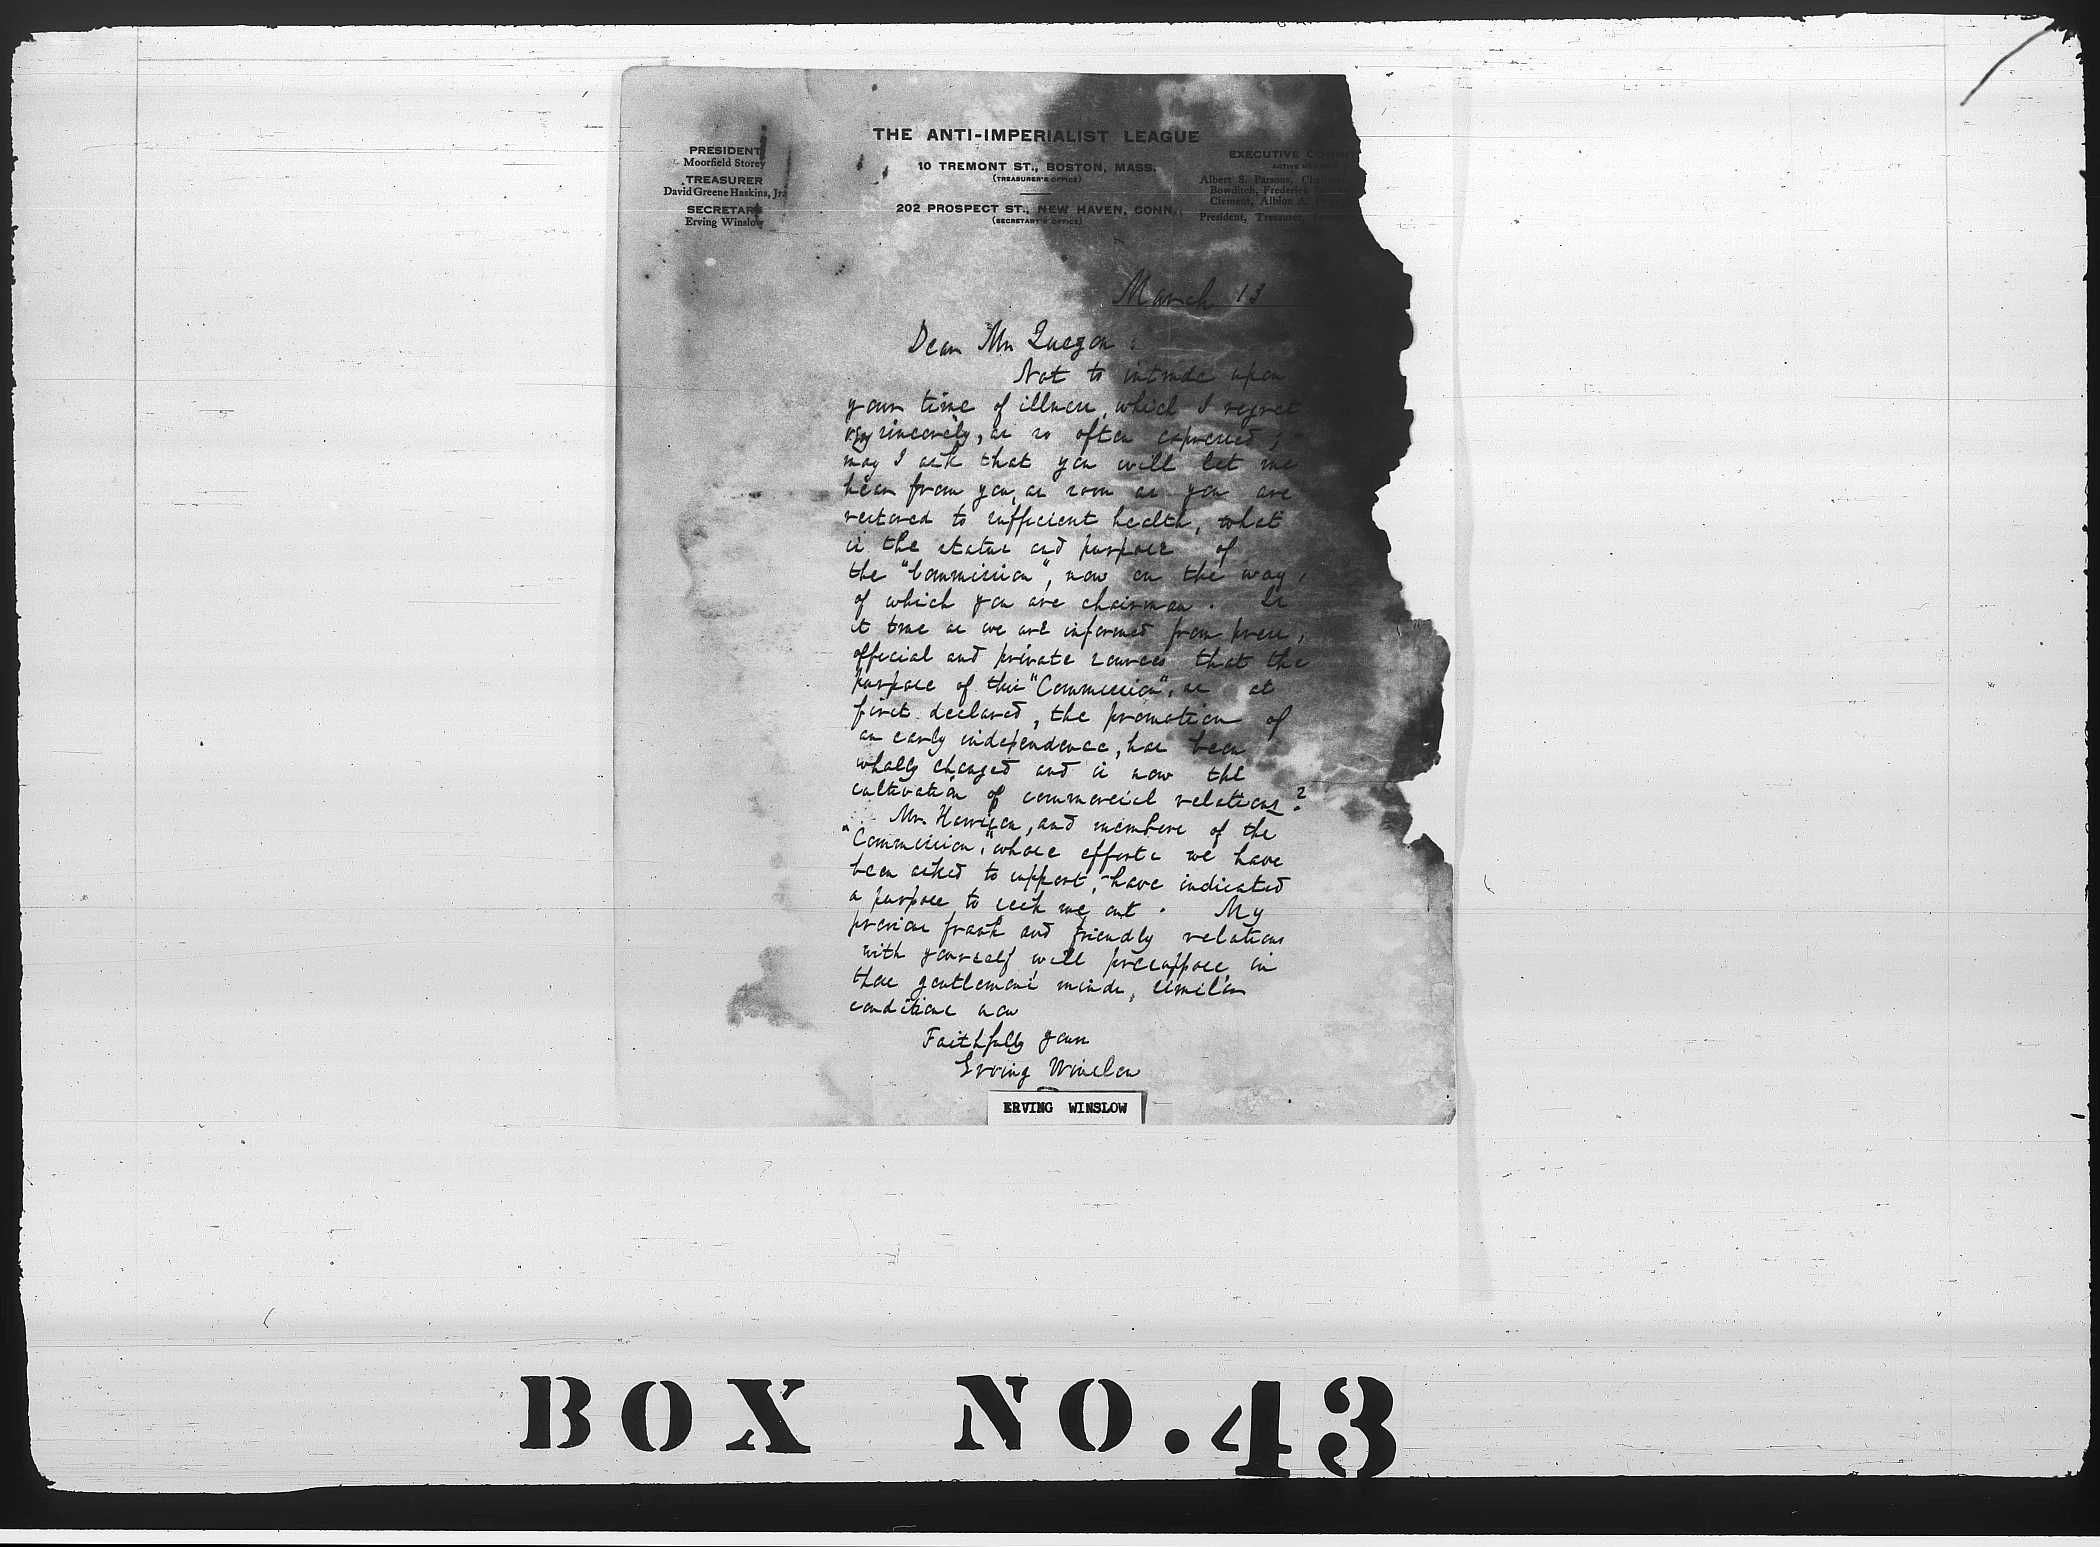 THE ANTI-IMPERIALIST LEAGUE
10 TREMONT ST., BOSTON, MASS.
(TREASURER'S OFFICE)
202 PROSPECT ST., NEW HAVEN, CONN.
(SECRETARY'S OFFICE)
PRESIDENT
Moorfield Storey
TREASURER
David Greene Haskins, Jr.
SECRETARY
Erving Winslow
EXECUTIVE
Albert S. Parsons,
Bowditch, Frederick
Clement, Albion A.
President, Treasurer,
March 13
Dear Mr Quezon :
Not to intrude upon
your time of illness, which I regret
very sincerely, as so often expressed ;
may I ask that you will let me
hear from you, as soon as you are
restored to sufficient health, what
is the status and purpose of
the "Commission", now on the way,
of which you are chairman. Is
it true as we are informed from press,
official and private sources that the
purpose of this "Commission", as at
first declared, the promotion of
an early independence, has been
wholly changed and is now the
cultivation of commercial relations?
Mr. Harrison, and members of the
"Commission", whose efforts we have
been asked to support, have indicated
a purpose to seek me out. My
previous frank and friendly relations
with yourself will presuppose, in
those gentlemen's minds, similar
conditions now
Faithfully yours
Erving Winslow
ERVING WINSLOW
BOX NO. 43